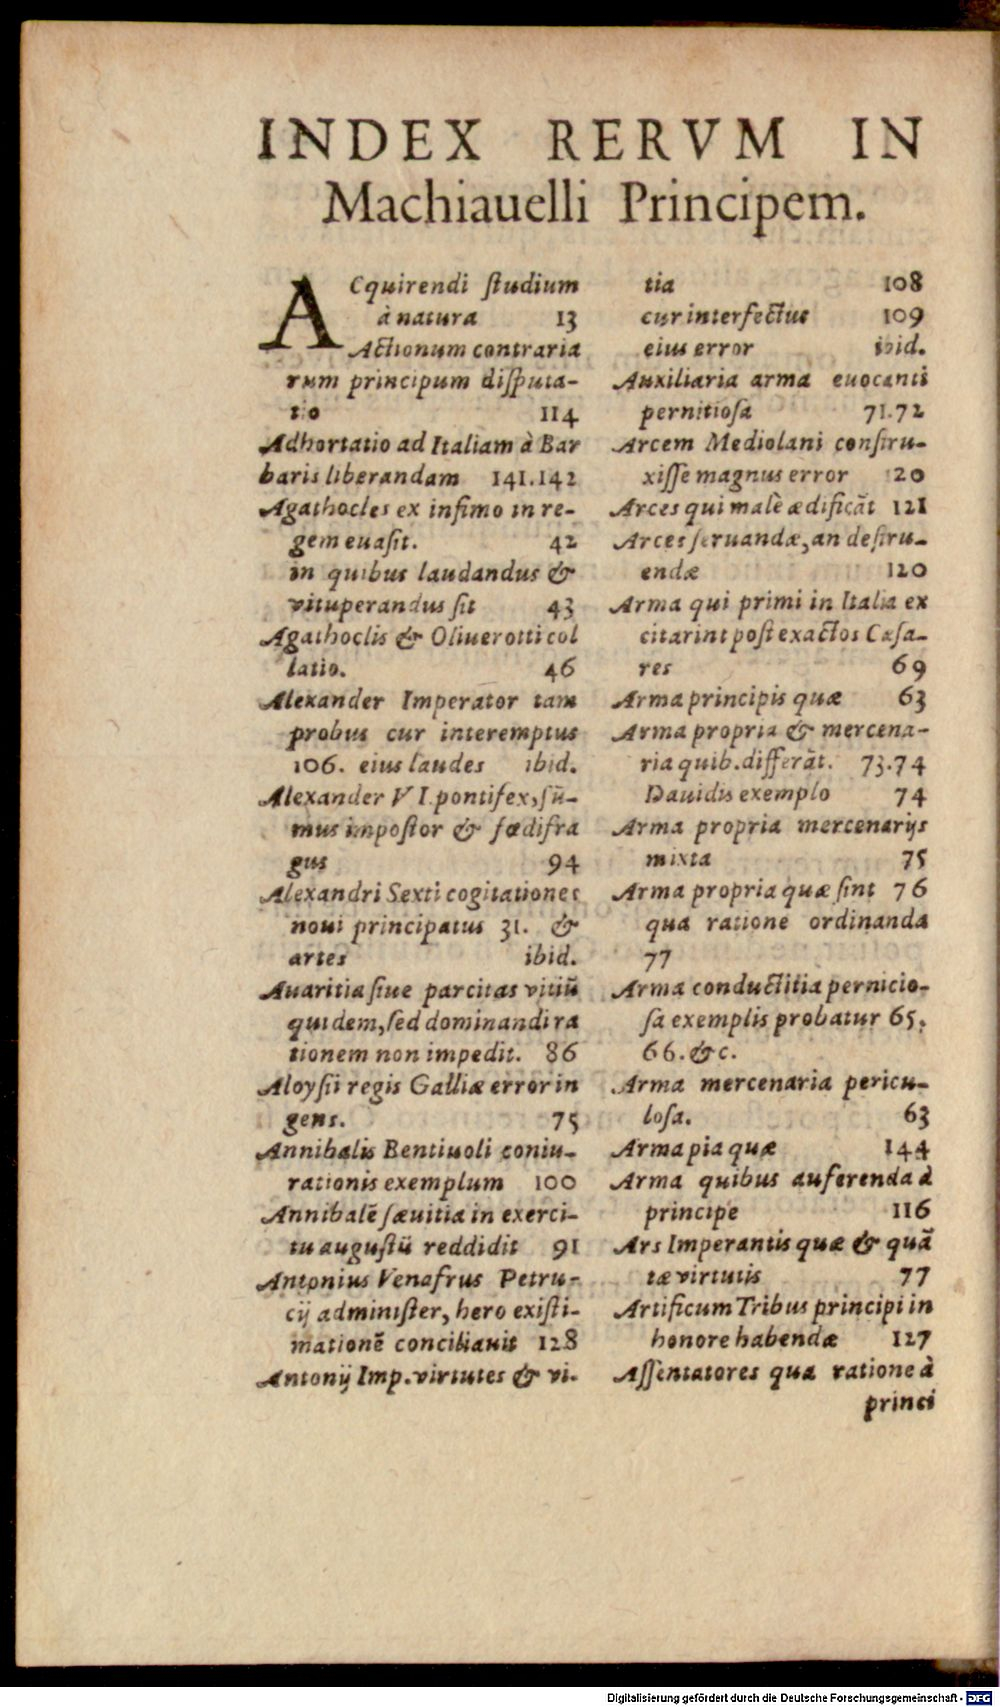 INDEX RERVM IN
Machiauelli Principem.
ACquirendi ſtudium
à natura 13
Actionum contraria
rum principum diſputa-
tio 114
Adhortatio ad Italiam à Bar
baris liberandam 141.142
Agathocles ex infimo in re-
gem euaſit. 42
in quibus laudandus &
vituperandus ſit 43
Agathoclis & Oliuerotti col
latio. 46
Alexander Imperator tam
probus cur interemptus
106. eius laudes ibid.
Alexander VI. pontifex, ſū-
mus impoſtor & fœdifra
gus 94
Alexandri Sexti cogitationes
noui principatus 31. &
artes ibid.
Auaritia ſiue parcitas vitiū
quidem, ſed dominandi ra
tionem non impedit. 86
Aloyſii regis Galliæ error in
gens. 75
Annibalis Bentiuoli coniu-
rationis exemplum 100
Annibalē ſæuitia in exerci-
tu auguſtū reddidit 91
Antonius Venafrus Petru-
cij adminiſter, hero exiſti-
mationē conciliauit 128
Antonij Imp. virtutes & vi-
tia 108
cur interfectus 109
eius error ibid.
Auxiliaria arma euocanti
pernitioſa 71.72
Arcem Mediolani conſtru-
xiſſe magnus error 120
Arces qui malè ædificāt 121
Arces ſeruandæ, an deſtru-
endæ 120
Arma qui primi in Italia ex
citarint poſt exactos Cæſa-
res 69
Arma principis quæ 63
Arma propria & mercena-
ria quib. differāt. 73.74
Dauidis exemplo 74
Arma propria mercenarijs
mixta 75
Arma propria quæ ſint 76
qua ratione ordinanda
77
Arma conductitia pernicio-
ſa exemplis probatur 65.
66. &c.
Arma mercenaria pericu-
loſa. 63
Arma pia quæ 144
Arma quibus auferenda à
principe 116
Ars Imperantis quæ & quā
tæ virtutis 77
Artificum Tribus principi in
honore habendæ 127
Aſſentatores qua ratione à
princi
Digitalisierung gefördert durch die Deutsche Forschungsgemeinschaft - DFG